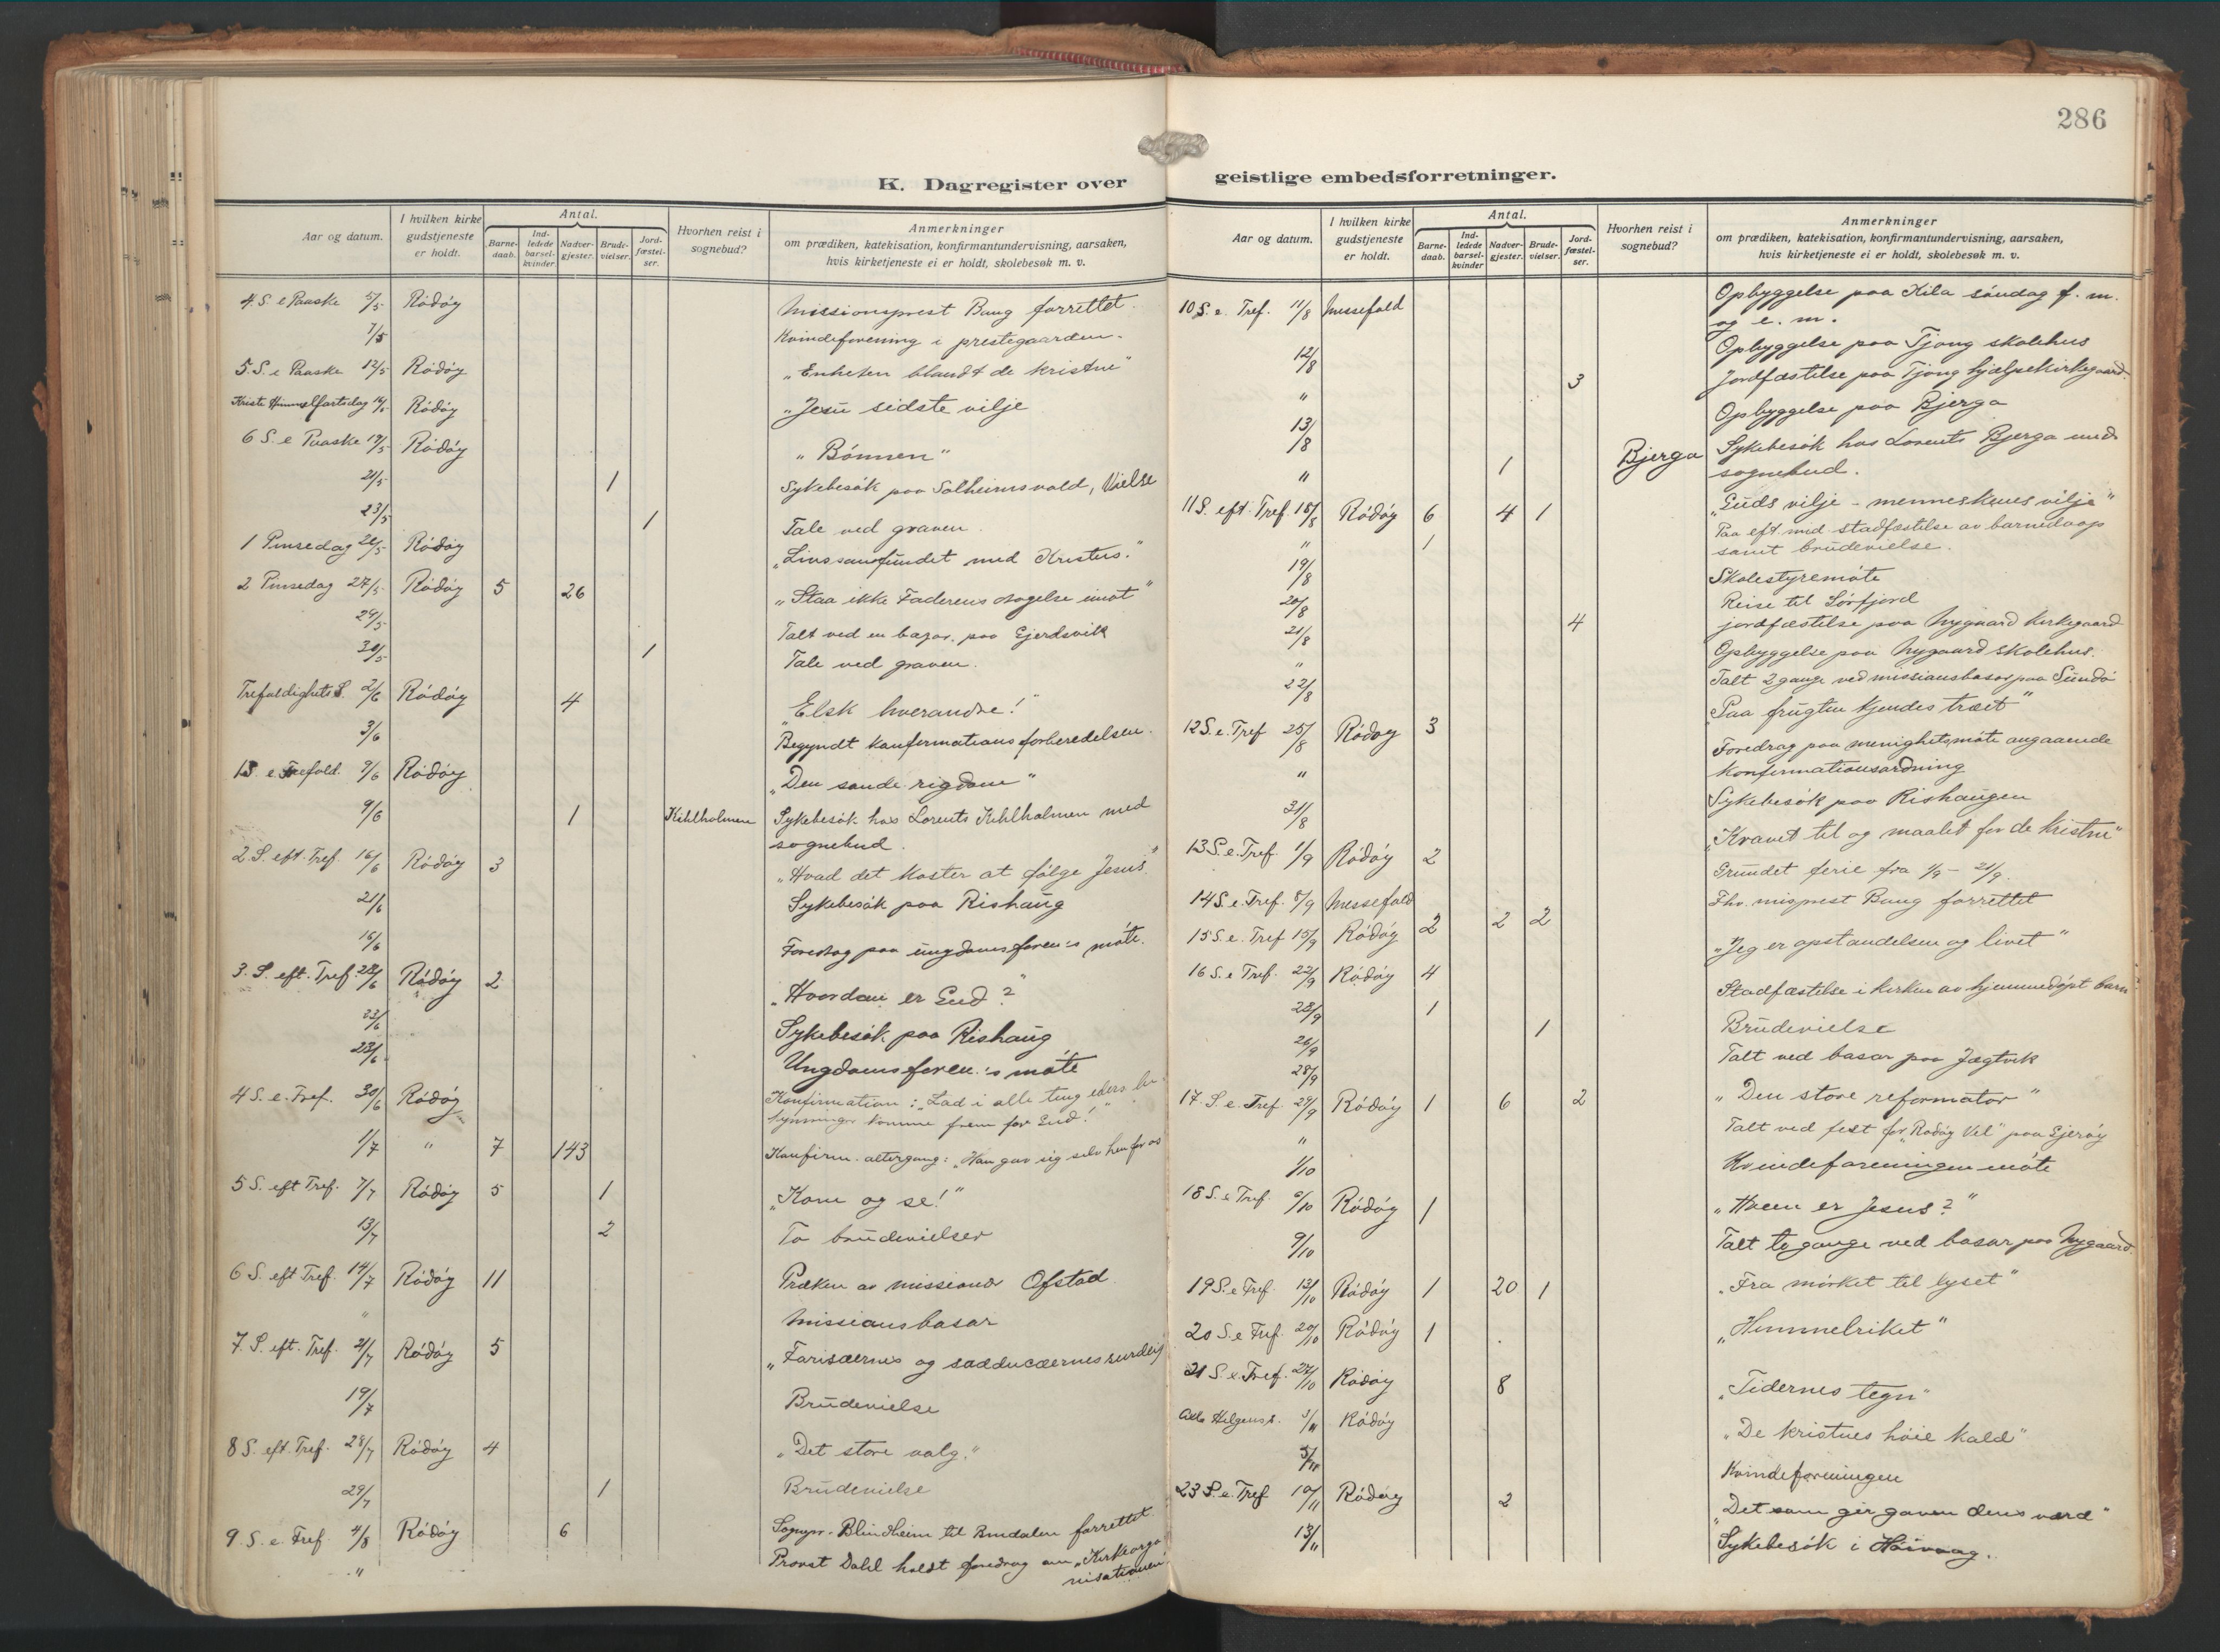 286
K. Dagregister over geistlige embedsforretninger.
Aar og datum. I hvilken kirke gudstjeneste er holdt. Antal. Barnedaab. Indledede barselkvinder. Nadvergjester. Brudevielser. Jordfæstelser. Hvorhen reist i sognebud? Anmerkninger om prædiken, katekisation, konfirmantundervisning, aarsaken, hvis kirketjeneste ei er holdt, skolebesøk m. v.
4. S. e Paaske 5/5 Rödöy Missionsprest Bang forrettet.
7/5 Kvindeforening i prestegaarden.
5. S. e Paaske 12/5 Rödöy „Enheten blandt de kristne"
Kristi Himmelfartsdag 16/5 Rödöy „Jesu sidste vilje
6 S. e Paaske 19/5 Rödöy „Bönnen"
21/5 1 Sykebesök paa Solheimsvold, Vielse
23/5 1 Tale ved graven.
1 Pinsedag 26/5 Rödöy „Livssamfundet med Kristus."
2 Pinsedag 27/5 Rödöy 5 26 „Staa ikke Faderens dragelse imot"
29/5 Talt ved en bazar paa Gjerdsvik
30/5 1 Tale ved graven.
Trefoldighets S. 2/6 Rödöy 4 „Elsk hverandre!"
3/6 Begyndt konfirmationsforberedelsen.
1 S. e Trefold. 9/6 Rödöy „Den sande rigdom"
9/6 1 Kihlholmen Sykebesök hos Lorents Kihlholmen med
sognebud.
2. S. eft. Tref. 16/6 Rödöy 3 „Hvad det koster at fölge Jesus"
21/6 Sykebesök paa Rishaug
16/6 Foredrag paa ungdomsforen:s möte.
3. S. eft. Tref. 23/6 Rödöy 2 „Hvordan er Gud?"
23/6 Sykebesök paa Rishaug
28/6 Ungdomsforen:s möte
4 S. e. Tref. 30/6 Rödöy Konfirmation: „Lad i alle ting eders be-
gjæringer komme frem for Gud!"
1/7 " 7 143 Konfirm. altergang: „Han gav sig selv hen for os
5 S. eft Tref. 7/7 Rödöy 5 1 „Kom og se!"
13/7 2 To brudevielser
6 S. eft Tref. 14/7 Rödöy 11 Præken av missionær Ofstad.
" Missionsbasar
7. S. eft. Tref. 21/7 Rödöy 5 „Farisæernes og sadducæernes surdeig
19/7 Brudevielse
8 S. eft. Tref. 28/7 Rödöy 4 „Det store valg."
29/7 1 Brudevielse
9. S. e. Tref. 4/8 Rödöy 6 Sognepr. Blindheim til Bindalen forrettet.
" Provst Dahl holdt foredrag om „Kirkeorga-
nisationen"
Aar og datum. I hvilken kirke gudstjeneste er holdt. Antal. Barnedaab. Indledede barselkvinder Nadvergjester. Brudevielser. Jordfæstelser. Hvorhen reist i sognebud? Anmerkninger om prædiken, katekisation, konfirmantundervisning, aarsaken, hvis kirketjeneste ei er holdt, skolebesøk m. v.
10 S. e. Tref. 11/8 Messefald Opbyggelse paa Kila söndag f. m.
og e. m.
12/8 Opbyggelse paa Tjong skolehus
" 3 Jordfæstelse paa Tjong hjælpekirkegaard.
13/8 Opbyggelse paa Bjerga
" 1 Bjerga Sykebesök hos Lorents Bjerga med
sognebud.
11 S. eft. Tref 18/8 Rödöy 6 4 1 „Guds vilje – menneskenes vilje"
" 1 Paa eft. mid stadfæstelse av barnedaap
samt brudevielse.
19/8 Skolestyremöte
20/8 Reise til Sörfjord
21/8 4 jordfæstelse paa Nygaard kirkegaard
" Opbyggelse paa Nygaard skolehus.
22/8 Talt 2 gange ved missionsbasar paa Sundö
12 S. e. Tref 25/8 Rödöy 3 „Paa frugten kjendes træet"
" Foredrag paa menighetsmöte angaaende
konfirmationsordning
31/8 Sykebesök paa Rishaugen
13 S. e. Tref. 1/9 Rödöy 2 „Kravet til og maalet for de kristne"
14 S. e. Tref. 8/9 Messefald Grundet ferie fra 1/9 – 21/9.
15 S. e. Tref 15/9 Rödöy 2 2 2 Fhv. misprest Bang forrettet
16 S. e Tref. 22/9 Rödöy 4 „Jeg er opstandelsen og livet"
23/9 1 Stadfæstelse i kirken av hjemmedöpt barn
26/9 1 Brudevielse
28/9 Talt ved basar paa Jægtvik
17. S e. Tref. 29/9 Rödöy 1 6 2 „Den store reformator"
" Talt ved fest for „Rödöy Vel" paa Gjeröy
1/10 Kvindeforeningenmöte
18 S. e Tref. 6/10 Rödöy 1 „Hvem er Jesus?"
9/10 Talt to gange ved basar paa Nygaard.
19 S. e Tref. 13/10 Rödöy 1 20 1 „Fra mörket til lyset"
20 S. e Tref. 20/10 Rödöy 1 „Himmelriket"
21 S. e. Tref. 27/10 Rödöy 8 „Tidernes tegn"
Alle Helgens s. 3/11 Rödöy „De kristnes höie kald"
5/11 Kvindeforeningen
23 S. e. Tref 10/11 Rödöy 2 „Det som gir gaven dens værd"
13/11 Sykebesök i Höivaag.